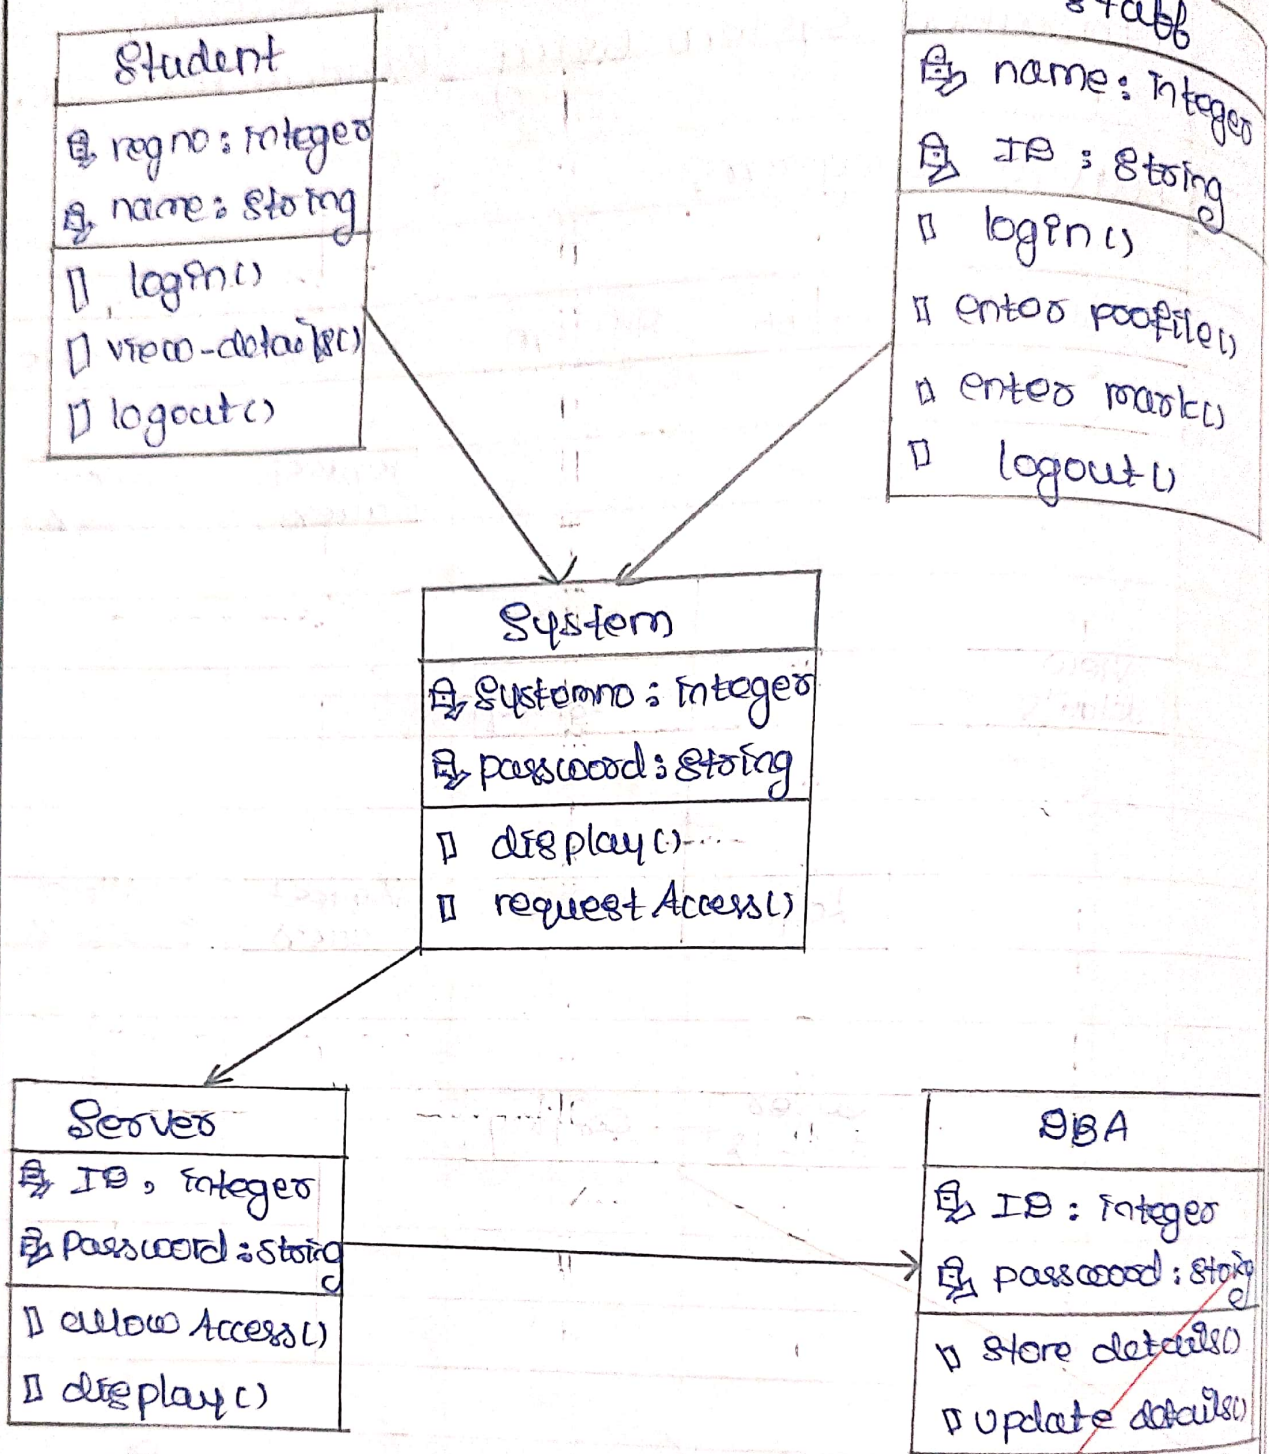 Student
regno: integer
name: string
login()
view-details()
logout()
Staff
name: integer
ID: string
login()
enter profile()
enter mark()
logout()
System
Systemno: integer
password: string
display()
request Access()
Server
ID, integer
Password: string
allow Access()
display()
DBA
ID: integer
password: string
store details()
update details()